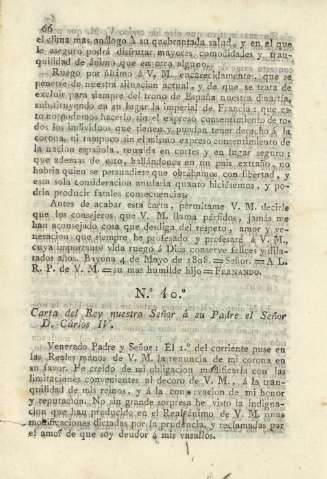 66
el clima mas análogo à su quebrantada salud, y en el que
le aseguro podrá disfrutar mayores comodidades y tran-
quilidad de ánimo que en otro alguno.
Ruego por último á V. M. encarecidamente, que se
penetre de nuestra situacion actual, y de que se trata de
excluir para siempre del trono de España nuestra dinastía,
substituyendo en su lugar la imperial de Francia: que es-
to no podemos hacerlo sin el expreso consentimiento de to-
dos los individuos que tienen y puedan tener derecho á la
corona, ni tampoco sin el mismo expreso consentimiento de
la nacion española, reunida en cortes y en lugar seguro:
que ademas de esto, hallándonos en un pais extraño, no
habria quien se persuadiese que obrábamos con libertad, y
esta sola consideracion anularia quanto hiciésemos, y po-
dria producir fatales consecuencias.
Antes de acabar esta carta, permítame V. M. decirle
que los consejeros que V. M. llama pérfidos, jamás me
han aconsejado cosa que desdiga del respeto, amor y ve-
neracion que siempre he profesado y profesaré á V. M.,
cuya importante vida ruego á Dios conserve felices y dila-
tados años. Bayona 4 de Mayo de 1808. = Señor. = A L.
R. P. de V. M. = su mas humilde hijo = FERNANDO.
N.º 10.º
Carta del Rey nuestro Señor á su Padre el Señor
D. Cárlos IV.
Venerado Padre y Señor: El 1.º del corriente puse en
las Reales manos de V. M. la renuncia de mi corona en
su favor. He creido de mi obligacion modificarla con las
limitaciones convenientes al decoro de V. M., á la tran-
quilidad de mis reinos, y á la conservacion de mi honor
y reputacion. No sin grande sorpresa he visto la indigna-
cion que han producido en el Real ánimo de V. M. unas
modificaciones dictadas por la prudencia, y reclamadas por
el amor de que soy deudor á mis vasallos.